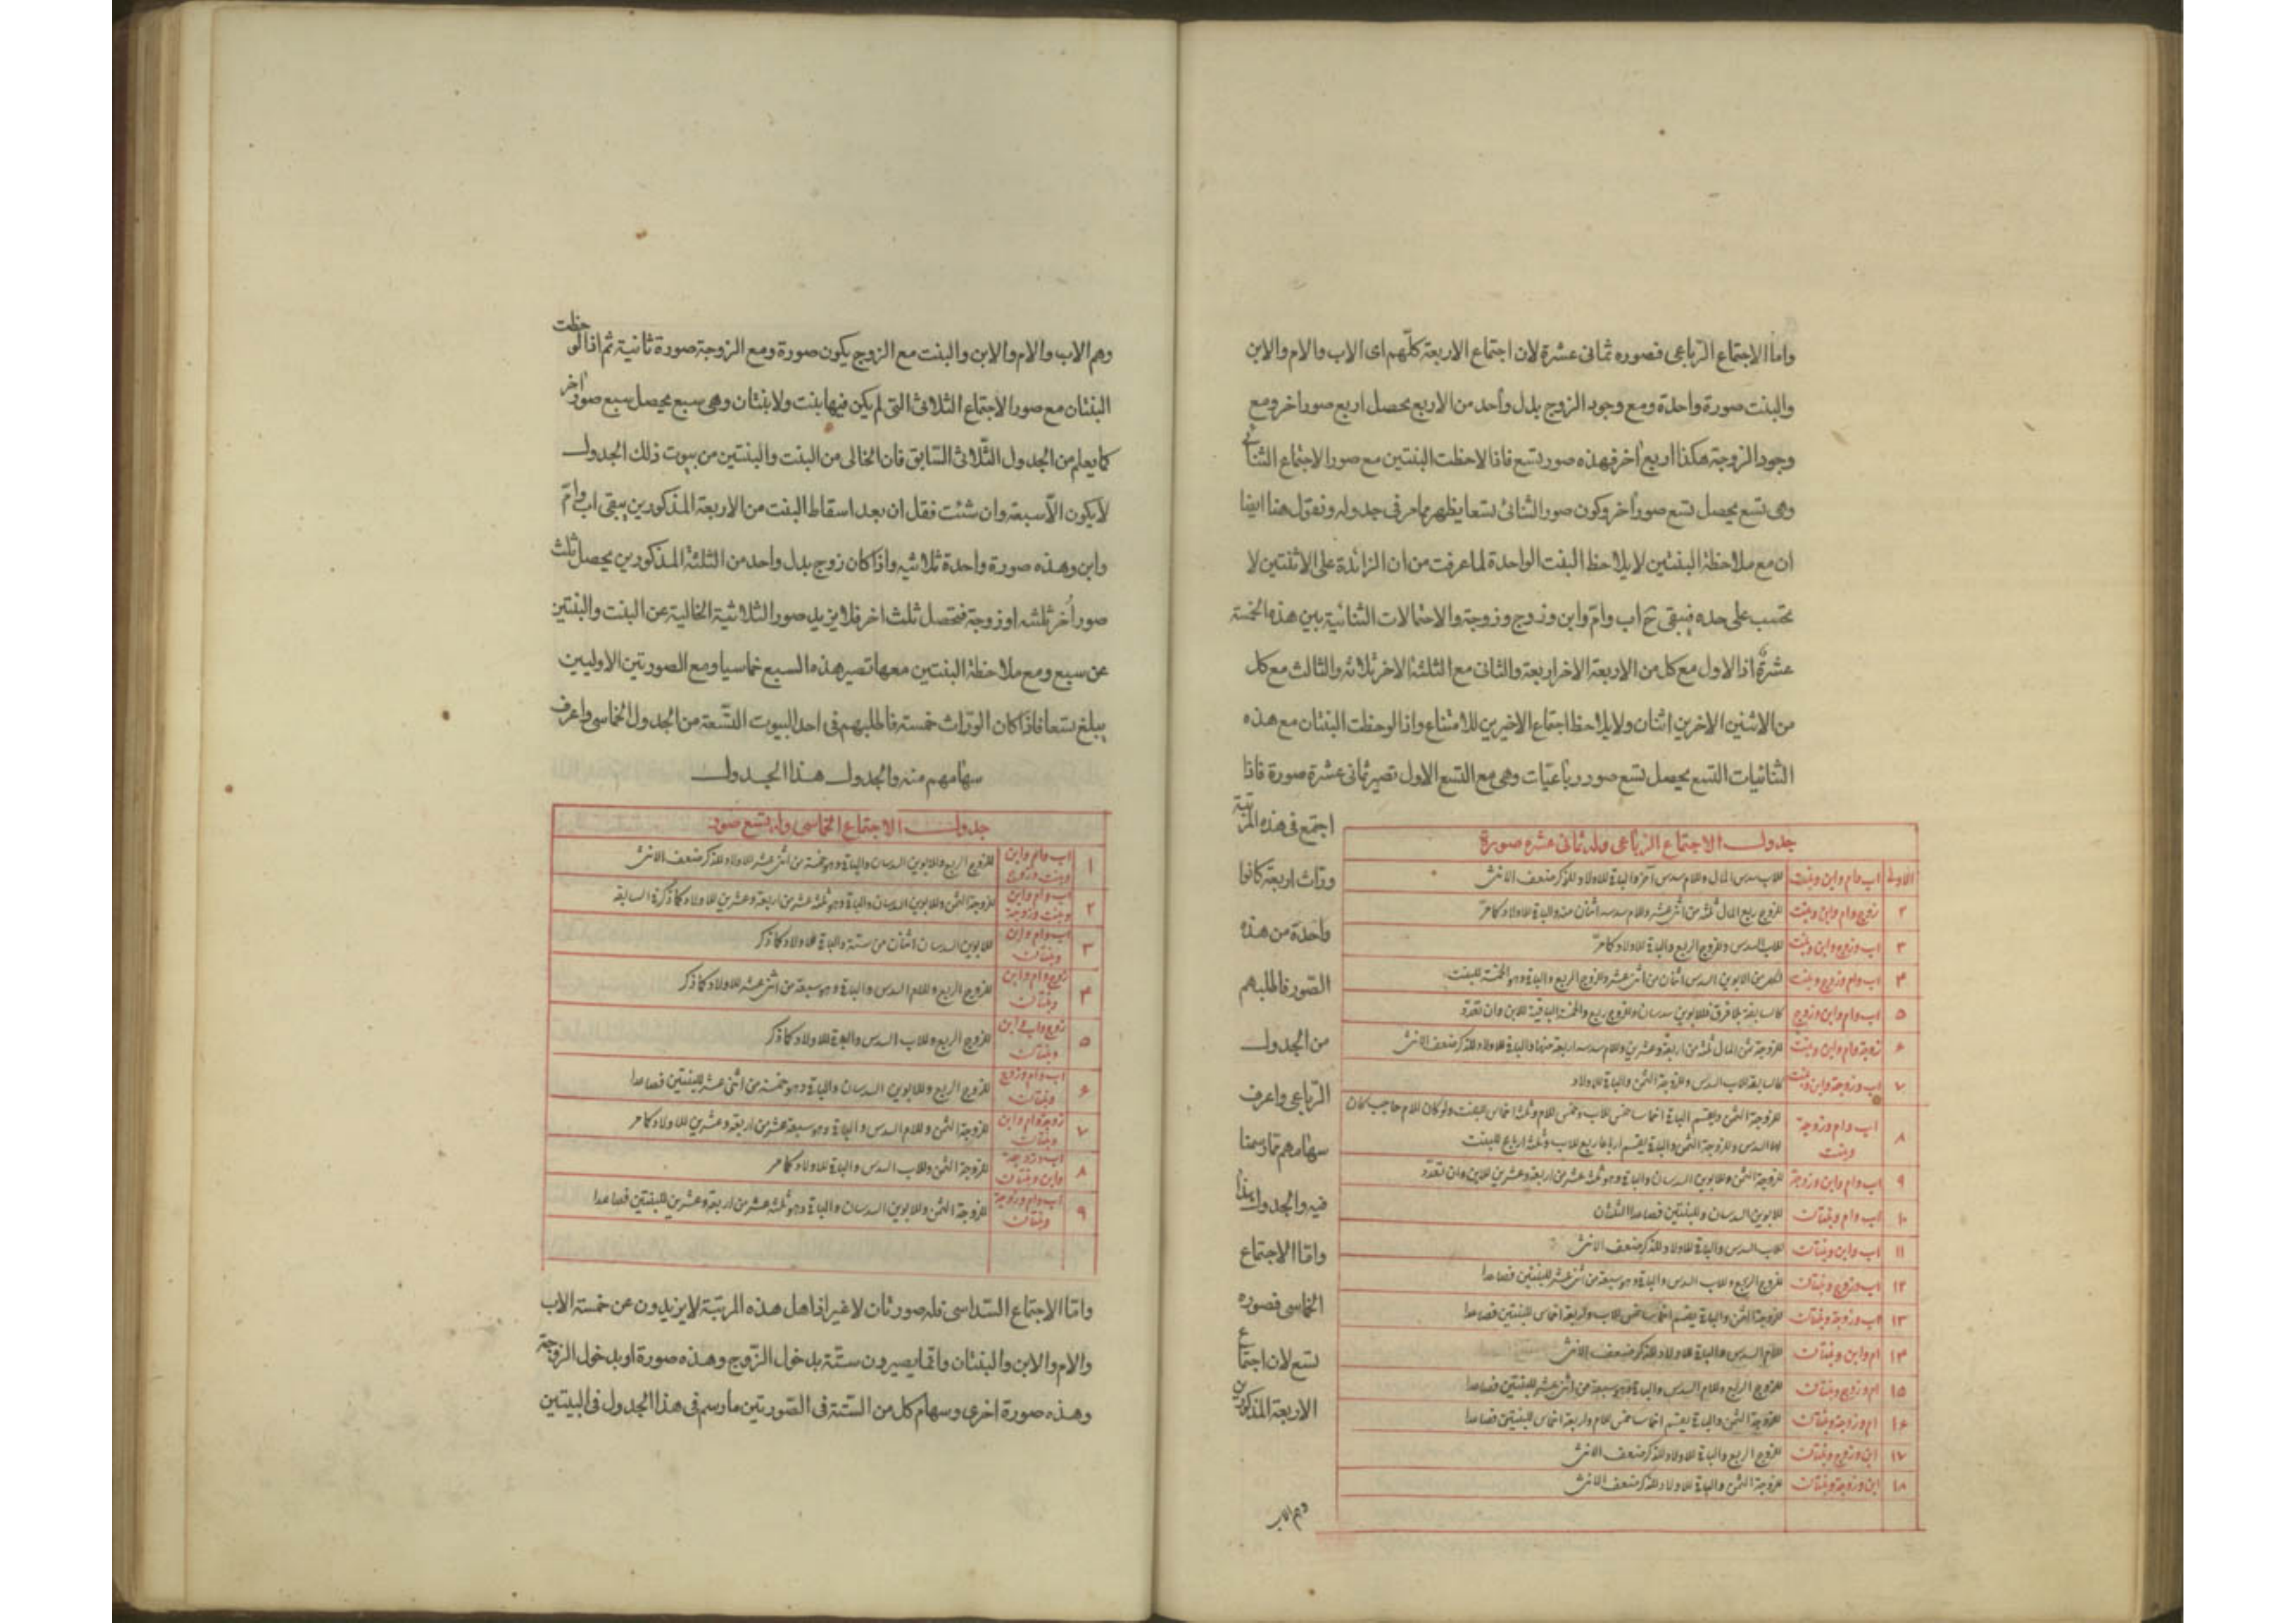 واما الاجتماع الرباعى فصوره ثمانى عشرة لان اجتماع الاربعة كلّهم اى الاب والام والابن
والبنت صورة واحدة ومع وجود الزوج بدل واحد من الاربع يحصل اربع صور اخر ومع
وجود الزوجة هكذا اربع اخر فهذه صور تسع فاذا لاحظت البنتين مع صور الاجتماع الثنائى
وهى تسع يحصل تسع صور اخر وكون صور الثنائى تسعا يظهر مما مر فى جدوله ونقول هنا ايضا
ان مع ملاحظة البنتين لا يلاحظ البنت الواحدة لما عرفت من ان الزائدة على الاثنتين لا
تحتسب على حده فيبقى ح اب وام وابن وزوج وزوجة والاحتمالات الثنائية بين هذه الخمسة
عشرة اذ الاول مع كل من الاربعة الاخر اربعة والثانى مع الثلثة الاخر ثلاثة والثالث مع كل
من الاثنين الاخرين اثنان ولا يلاحظ اجتماع الاخيرين للامتناع واذا لوحظت البنتان مع هذه
الثنائيات التسع يحصل تسع صور رباعيّات وهى مع التسع الاول تصير ثمانى عشرة صورة فاذا
اجتمع فى هذه المرتبة
ورّاث اربعة كانوا
واحدة من هذه
الصّور فاطلبهم
من الجدول
الرّباعى واعرف
سهامهم مما رسمنا
فيه والجدول هذا
وامّا الاجتماع
الخماسى فصوره
تسع لان اجتماع
الاربعة المذكورين
وهم الاب
جدول الاجتماع الرباعى وله ثمانى عشره صورة
الاولى اب وام وابن وبنت للاب سدس المال وللام سدس آخر والباقى للاولاد للذكر ضعف الانثى
٢ زوج وام وابن وبنت للزوج ربع المال ثلثة من اثنى عشر وللام سدسه اثنان منه والباقى للاولاد كما مرّ
٣ اب وزوج وابن وبنت للاب السدس وللزوج الربع والباقى للاولاد كما مرّ
٤ اب وام وزوج وبنت لكل من الابوين السدس اثنان من اثنى عشر وللزوج الربع والباقى وهو الخمسة للبنت
٥ اب وام وابن وزوج كالسابقة بلا فرق فللابوين سدسان وللزوج ربع والخمسة الباقية للابن وان تعدّد
٦ زوجة وام وابن وبنت للزوجة ثمن المال ثلثة من اربعة وعشرين وللام سدسه اربعة منها والباقى للاولاد للذكر ضعف الانثى
٧ اب وزوجة وابن وبنت كالسابقة للاب السدس وللزوجة الثمن والباقى للاولاد
٨ اب وام وزوجة وبنت للزوجة الثمن ويقسم الباقى اخماسا خمس للاب وخمس للام وثلثة اخماس للبنت ولو كان للام حاجب كان
لها السدس وللزوجة الثمن والباقى يقسم ارباعا ربع للاب وثلثة ارباع للبنت
٩ اب وام وابن وزوجة للزوجة الثمن وللابوين السدسان والباقى وهو ثلثة عشر من اربعة وعشرين للابن وان تعدّد
١٠ اب وام وبنتان للابوين السدسان وللبنتين فصاعدا الثلثان
١١ اب وابن وبنتان للاب السدس والباقى للاولاد للذكر ضعف الانثى
١٢ اب وزوج وبنتان للزوج الربع وللاب السدس والباقى وهو سبعة من اثنى عشر للبنتين فصاعدا
١٣ اب وزوجة وبنتان للزوجة الثمن والباقى يقسم اخماسا خمس للاب واربعة اخماس للبنتين فصاعدا
١٤ ام وابن وبنتان للام السدس والباقى للاولاد للذكر ضعف الانثى
١٥ ام وزوج وبنتان للزوج الربع وللام السدس والباقى وهو سبعة من اثنى عشر للبنتين فصاعدا
١٦ ام وزوجة وبنتان للزوجة الثمن والباقى يقسم اخماسا خمس للام واربعة اخماس للبنتين فصاعدا
١٧ ابن وزوج وبنتان للزوج الربع والباقى للاولاد للذكر ضعف الانثى
١٨ ابن وزوجة وبنتان للزوجة الثمن والباقى للاولاد للذكر ضعف الانثى
وهم الاب والام والابن والبنت مع الزوج يكون صورة ومع الزوجة صورة ثانية ثم اذا لوحظت
البنتان مع صور الاجتماع الثلاثى التى لم يكن فيها بنت ولا بنتان وهى سبع يحصل سبع صور اخر
كما يعلم من الجدول الثّلاثى السّابق فان الخالى من البنت والبنتين من بيوت ذلك الجدول
لا يكون الّا سبعة وان شئت فقل ان بعد اسقاط البنت من الاربعة المذكورين يبقى اب وام
وابن وهذه صورة واحدة ثلاثيه واذا كان زوج بدل واحد من الثلثة المذكورين يحصل ثلث
صور اخر ثلثه او زوجة فتحصل ثلث اخر فلا يزيد صور الثلاثية الخالية عن البنت والبنتين
عن سبع ومع ملاحظة البنتين معها تصير هذه السبع خماسيا ومع الصورتين الاوليين
يبلغ تسعا فاذا كان الورّاث خمسة فاطلبهم فى احد البيوت التّسعة من الجدول الخماسى واعرف
سهامهم منه والجدول هذا الجدول
جدول الاجتماع الخماسى وله تسع صور
١ اب وام وابن وبنت وزوج للزوج الربع وللابوين السدسان والباقى وهو خمسة من اثنى عشر للاولاد للذكر ضعف الانثى
٢ اب وام وابن وبنت وزوجة للزوجة الثمن وللابوين السدسان والباقى وهو ثلثة عشر من اربعة وعشرين للاولاد كما ذكر فى السابقة
٣ اب وام وابن وبنتان للابوين السدسان اثنان من ستة والباقى للاولاد كما ذكر
٤ زوج وام وابن وبنتان للزوج الربع وللام السدس والباقى وهو سبعة من اثنى عشر للاولاد كما ذكر
٥ زوج واب وابن وبنتان للزوج الربع وللاب السدس والباقى للاولاد كما ذكر
٦ اب وام وزوج وبنتان للزوج الربع وللابوين السدسان والباقى وهو خمسة من اثنى عشر للبنتين فصاعدا
٧ زوجة وام وابن وبنتان للزوجة الثمن وللام السدس والباقى وهو سبعة عشر من اربعة وعشرين للاولاد كما مر
٨ اب وزوجة وابن وبنتان للزوجة الثمن وللاب السدس والباقى للاولاد كما مر
٩ اب وام وزوجة وبنتان للزوجة الثمن وللابوين السدسان والباقى وهو ثلثة عشر من اربعة وعشرين للبنتين فصاعدا
وامّا الاجتماع السّداسى فله صورتان لا غير اذ اهل هذه المرتبة لا يزيدون عن خمسة الاب
والام والابن والبنتان وانما يصيرون ستّة بدخول الزّوج وهذه صورة او بدخول الزوجة
وهذه صورة اخرى وسهام كل من الستّة فى الصّورتين ما رسم فى هذا الجدول فى البيتين